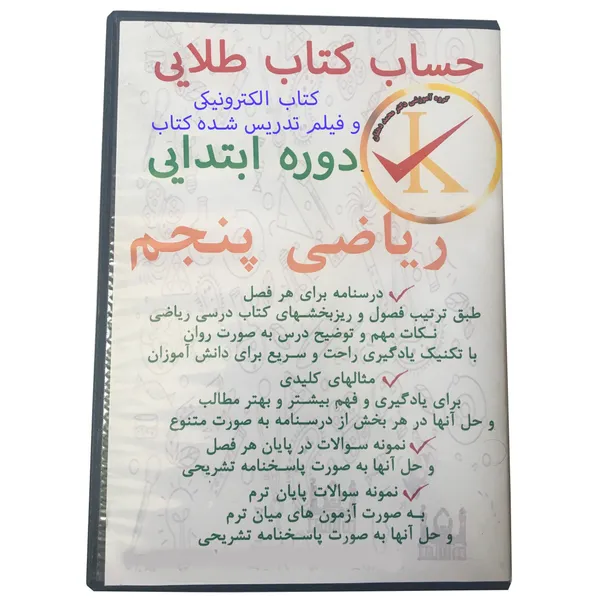 حساب کتاب طلایی
کتاب الکترونیکی
و فیلم تدریس شده کتاب
دوره ابتدایی
K
ریاضی پنجم
درسنامه برای هر فصل
طبق ترتیب فصول و ریزبخشهای کتاب درسی ریاضی
نکات مهم و توضیح درس به صورت روان
با تکنیک یادگیری راحت و سریع برای دانش آموزان
مثالهای کلیدی
برای یادگیری و فهم بیشتر و بهتر مطالب
و حل آنها در هر بخش از درسنامه به صورت متنوع
نمونه سوالات در پایان هر فصل
و حل آنها به صورت پاسخنامه تشریحی
نمونه سوالات پایان ترم
به صورت آزمون های میان ترم
و حل آنها به صورت پاسخنامه تشریحی